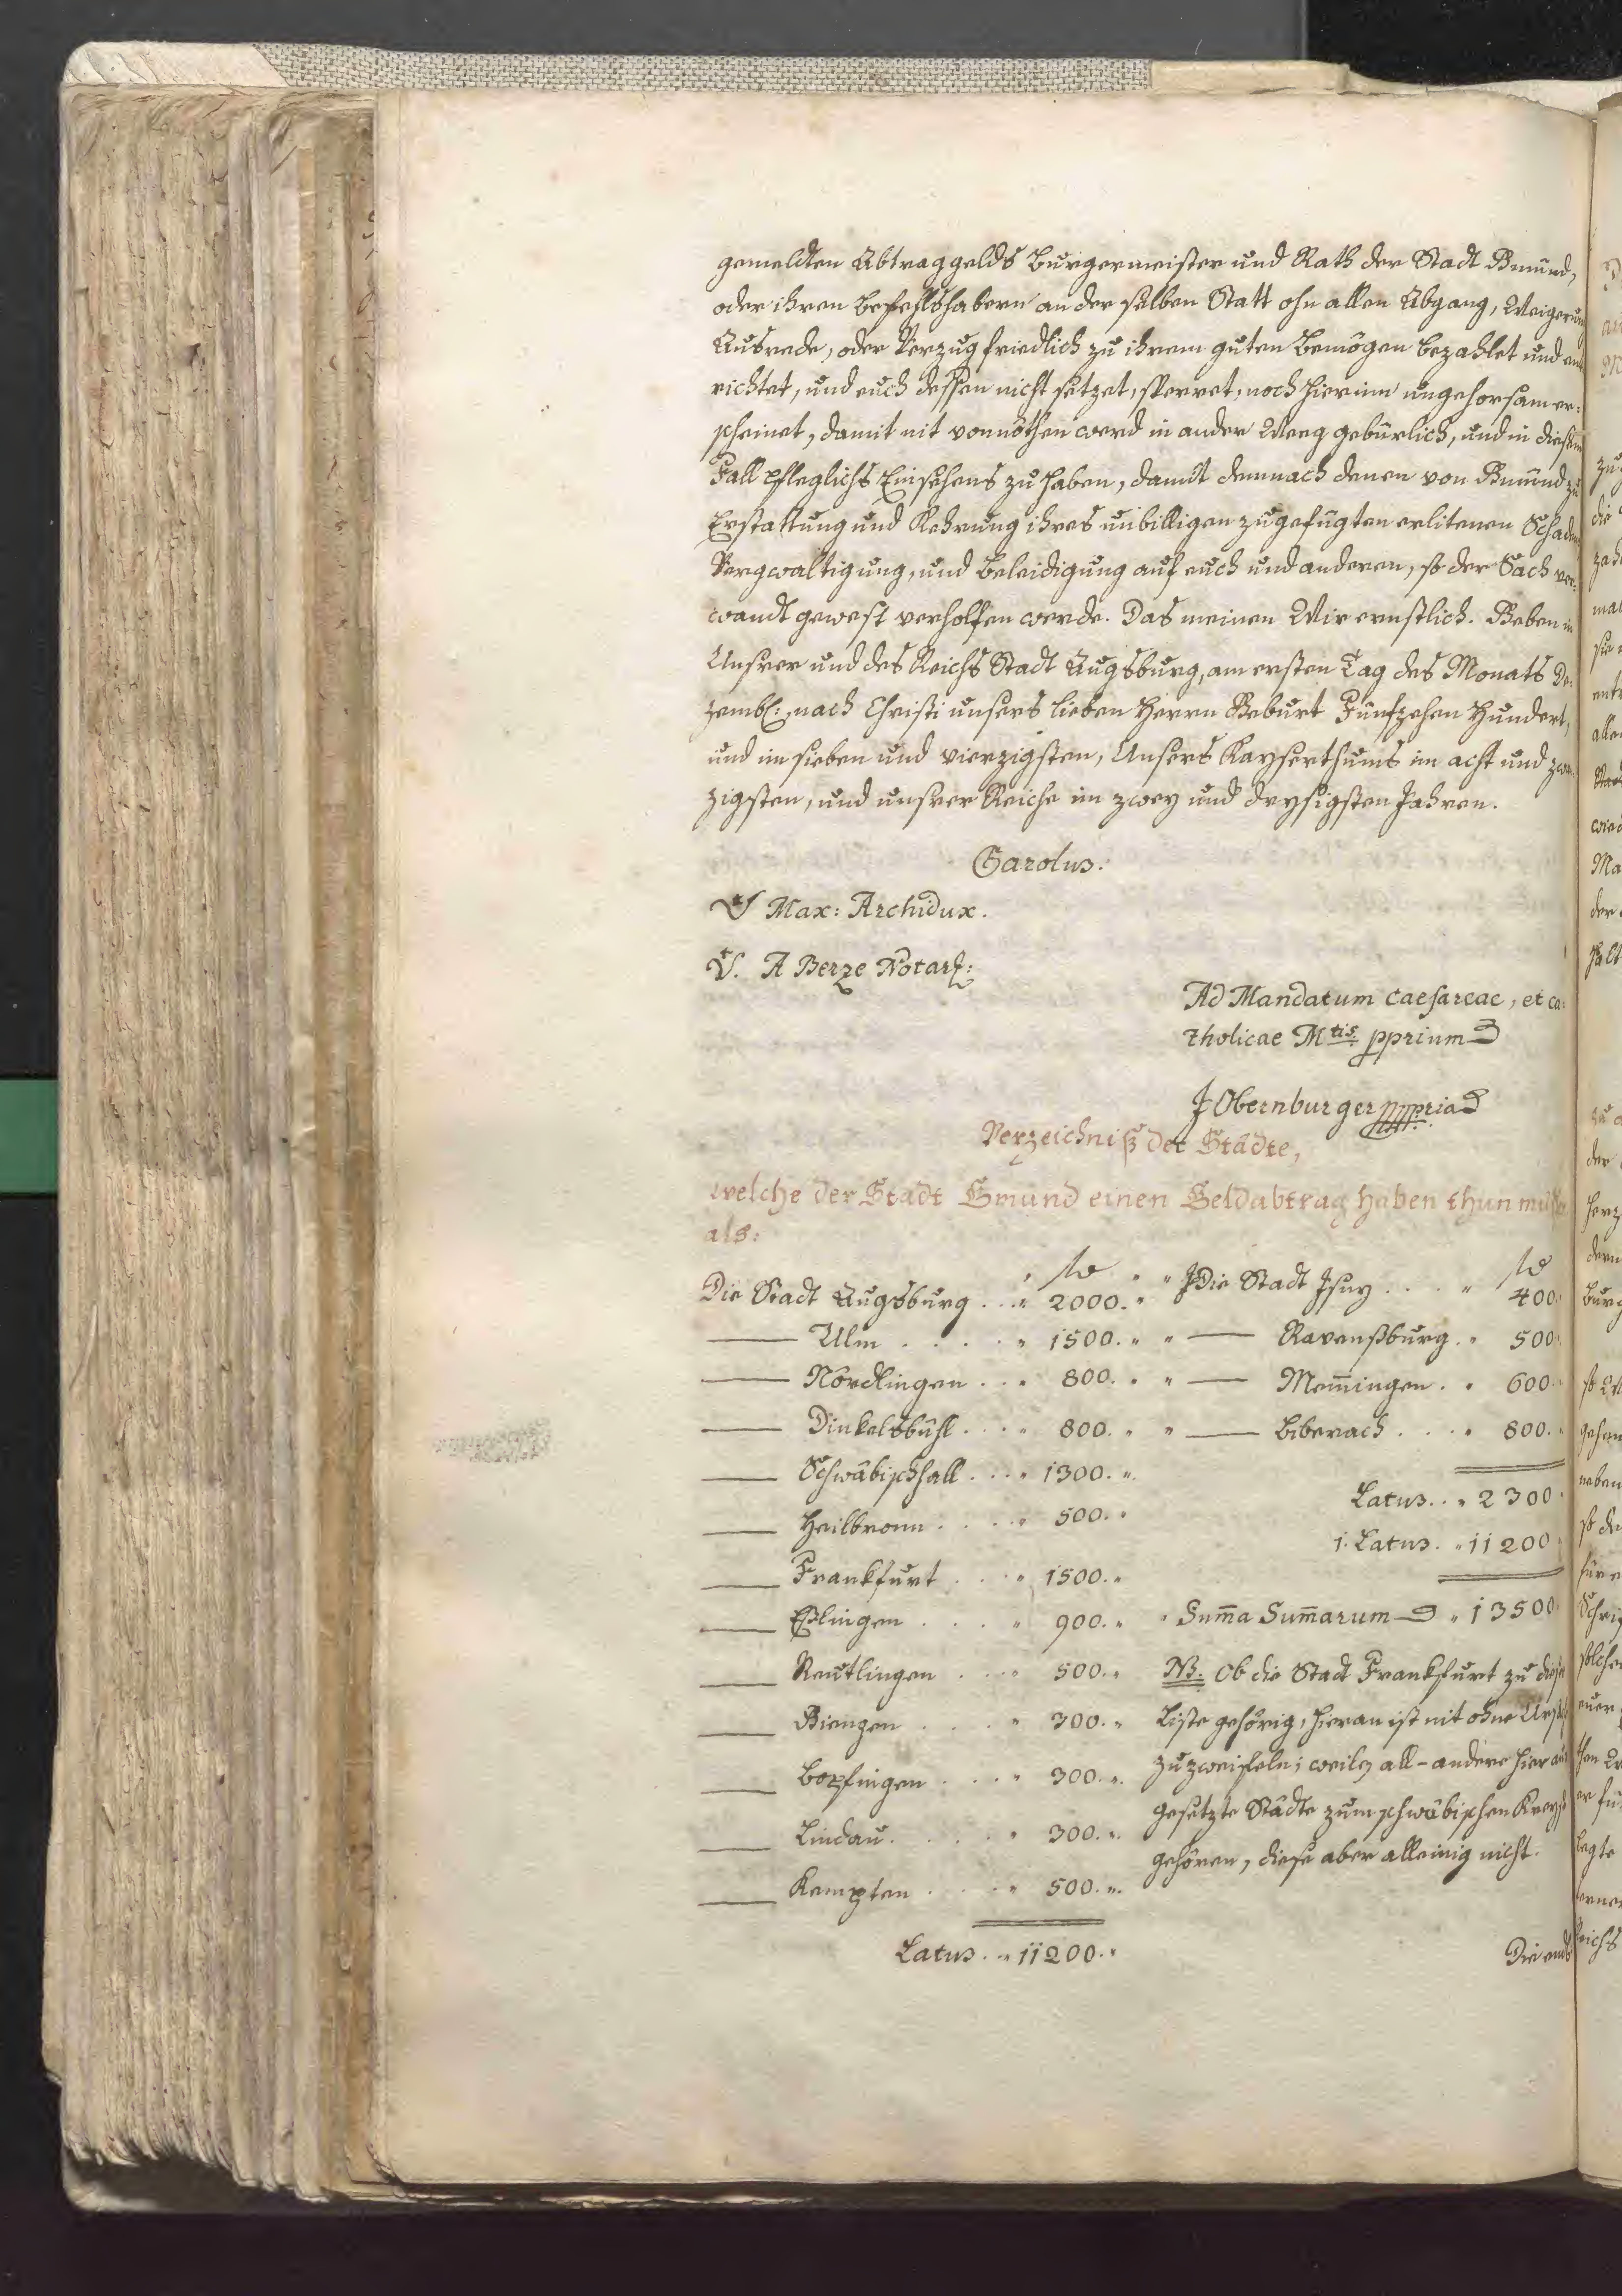 gemeldten Abtraggelds Burgermeister und Rath der Stadt Gmünd,
oder ihren Befehlshabern an der selben Statt ohn allen Abgang, Weigerung
Ausrede, oder Verzug friedlich zu ihrem guten Bemögen bezahlet und ent
richtet, und euch dessen nicht setzet, sperret, noch hierinn ungehorsam er:
scheinet, damit nit vonnöthen werd in ander Weeg gebürlich, und in diesem
Fall pfleglichs Einsehens zu haben, damit demnach denen von Gmünd zu
Erstattung und Kehrung ihres unbilligen zugefügten erlitenen Schaden
Vergwaltigung, und Beleidigung auf euch und anderen, so der Sach ver:
wandt gewest verholfen werde. Das meinen Wir ernstlich. Geben in
Unsrer und des Reichs Stadt Augsburg, am ersten Tag des Monats De:
zembr: nach Christi unsers lieben Herrn Geburt Fünfzehen Hundert,
und im sieben und vierzigsten, Unsers Kayserthums im acht und zwa
zigsten, und unsrer Reiche im zwey und drysigsten Jahren.
Carolus.
V Max: Archidux.
V. A Berze Notar:
Ad Mandatum caesareae, et ca:
tholicae Mtis. pprium
J Obernburger
Verzeichniß der Städte,
welche der Stadt Gmünd einen Geldabtrag haben thun müssen
als:
Die Stadt Augsburg . . . " 2000. "
— Ulm . . . . . " 1500. "
— Nördlingen . . . " 800. "
— Dinkelsbühl . . . . " 800. "
— Schwäbischhall . . . " 1300. "
— Heilbronn . . . . . " 500. "
— Frankfurt . . . " 1500. "
— Eßlingen . . . . " 900. "
— Reutlingen . . . . " 500. "
— Giengen . . . . " 300. "
— Bopfingen . . . . " 300. "
— Lindau . . . . . " 300. "
— Kempten . . . . " 500. "
Latus . . " 11200. "
Die Stadt Isny . . . . " 400.
— Ravenßburg . " 500.
— Mem̄ingen . " 600.
— Biberach . . . . " 800.
Latus . . " 2300.
1. Latus . " 11200
Sum̄a Sum̄arum " 13500
NB. Ob die Stadt Frankfurt zu dieser
Liste gehörig, hieran ist nit ohne Ursach
zu zweifeln; weilen all-andere hier auf
gesetzte Städte zum schwäbischen Kreyse
gehören, diese aber alleinig nicht.